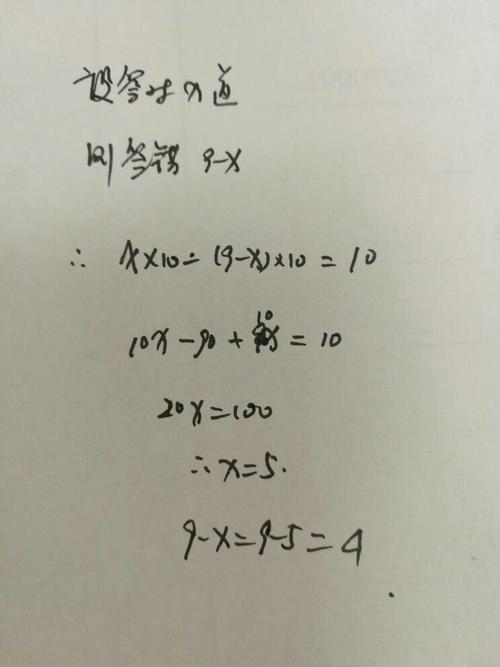 设答对x道
则答错 9-x
∴ x×10-(9-x)×10=10
10x-90+10x=10
20x=100
∴x=5.
9-x=9-5=4